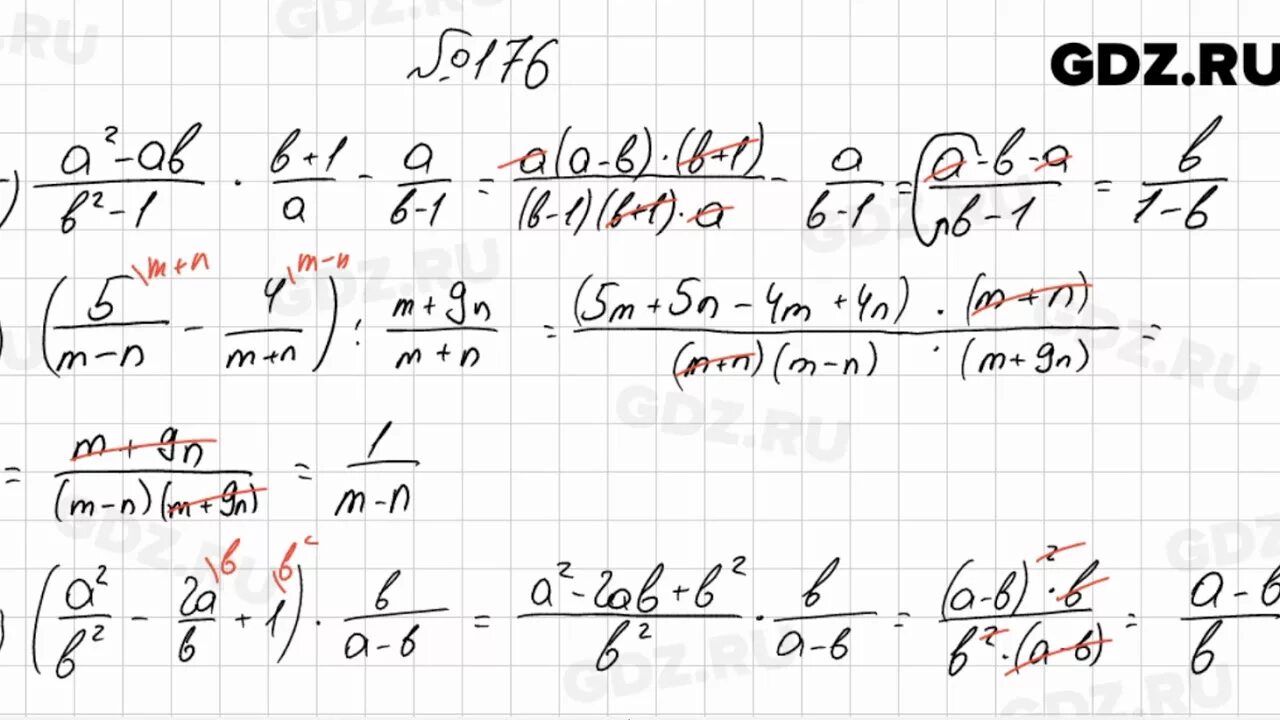 №176
GDZ.RU
) (a² - ab)/(b² - 1) · (b + 1)/a - a/(b - 1) = (a(a - b) · (b + 1))/((b - 1)(b + 1) · a) - a/(b - 1) = (a - b - a)/(b - 1) = b/(1 - b)
) (5\m+n/(m - n) - 4\m-n/(m + n)) : (m + 9n)/(m + n) = ((5m + 5n - 4m + 4n) · (m + n))/((m + n)(m - n) · (m + 9n)) =
= (m + 9n)/((m - n)(m + 9n)) = 1/(m - n)
) (a²/b² - 2a\b/b + 1\b²) · b/(a - b) = (a² - 2ab + b²)/b² · b/(a - b) = ((a - b)² · b)/(b² · (a - b)) = (a - b)/b